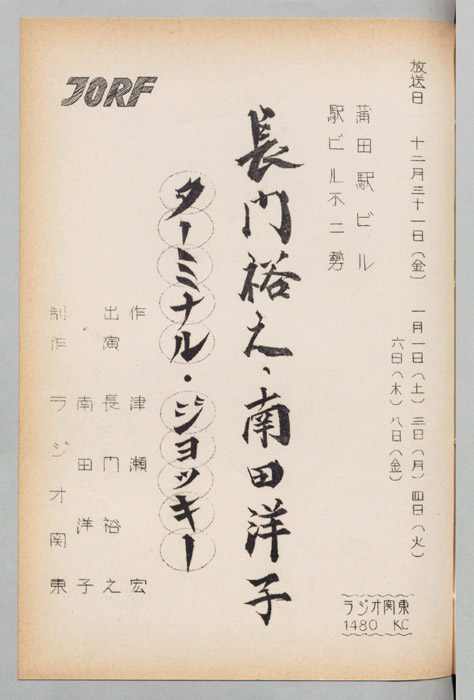 放送日 十二月三十一日(金) 一月一日(土) 三日(月) 四日(火)
六日(木) 八日(金)
蒲田駅ビル
駅ビル不二勢
長門裕之、南田洋子
ターミナル・ジョッキー
JORF
作 津瀬宏
出演 長門裕之
南田洋子
制作 ラジオ関東
ラジオ関東
1480 KC